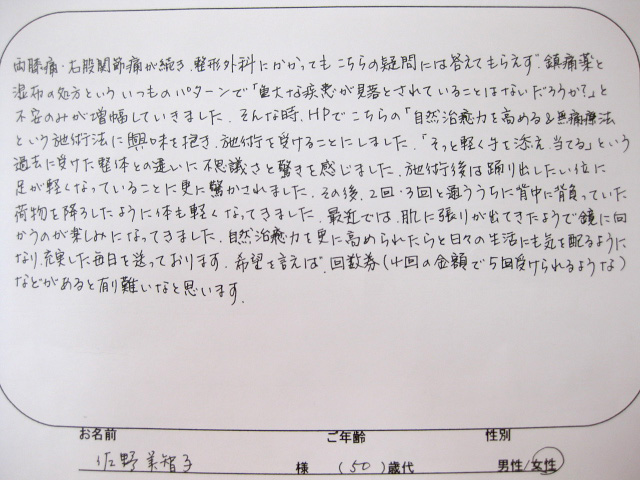 両膝痛・右股関節痛が続き、整形外科にかかってもこちらの疑問には答えてもらえず、鎮痛薬と
湿布の処方といういつものパターンで「重大な疾患が見落とされていることはないだろうか?」と
不安のみが増幅していきました。そんな時、HPでこちらの「自然治癒力を高める&無痛療法
という施術法に興味を抱き、施術を受けることにしました。「そっと軽く手を添え、当てる」という
過去に受けた整体との違いに不思議さと驚きを感じました。施術後は踊り出したい位に
足が軽くなっていることに更に驚かされました。その後、2回・3回と通ううちに背中に背負っていた
荷物を降ろしたように体も軽くなってきました。最近では、肌に張りが出てきたようで鏡に向
かうのが楽しみになってきました。自然治癒力を更に高められたらと日々の生活にも気を配るように
なり、充実した毎日を送っております。希望を言えば、回数券(4回の金額で5回受けられるような)
などがあると有り難いなと思います。
お名前 ご年齢 性別
佐野 美智子 様 (50)歳代 男性/女性